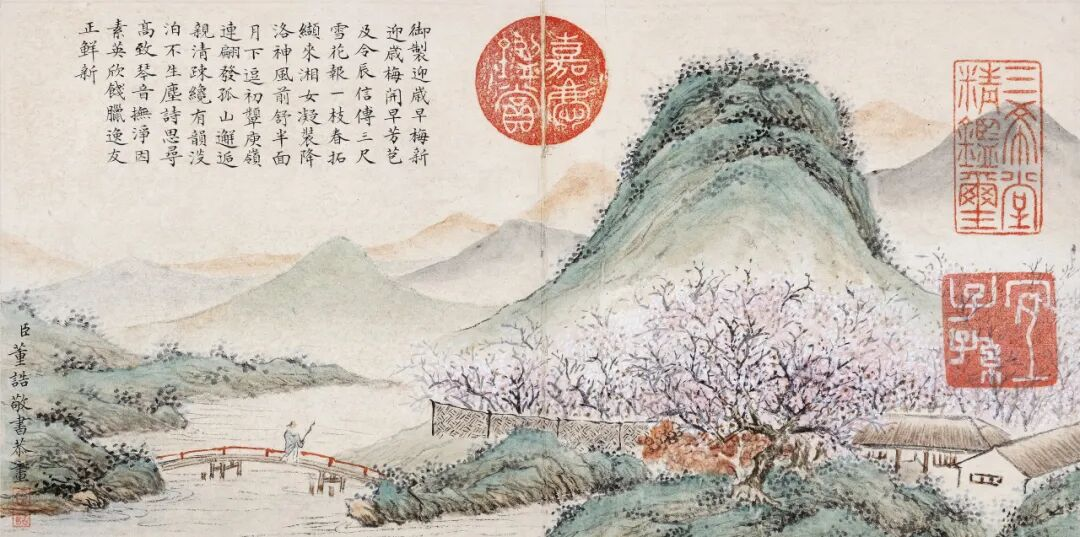 御製迎歲早梅新
迎歲梅開早芳苞
及令辰信傳三尺
雪花報一枝春拓
纈來湘女凝裝降
洛神風前舒半面
月下逗初顰庾嶺
連翩發孤山邂逅
親清疎纔有韻淡
泊不生塵詩思尋
高致琴音撫淨因
素英欣餞臘逸友
正鮮新
臣董誥敬書恭畫
嘉慶
鑒賞
三希堂
精鑑璽
宜
子孫